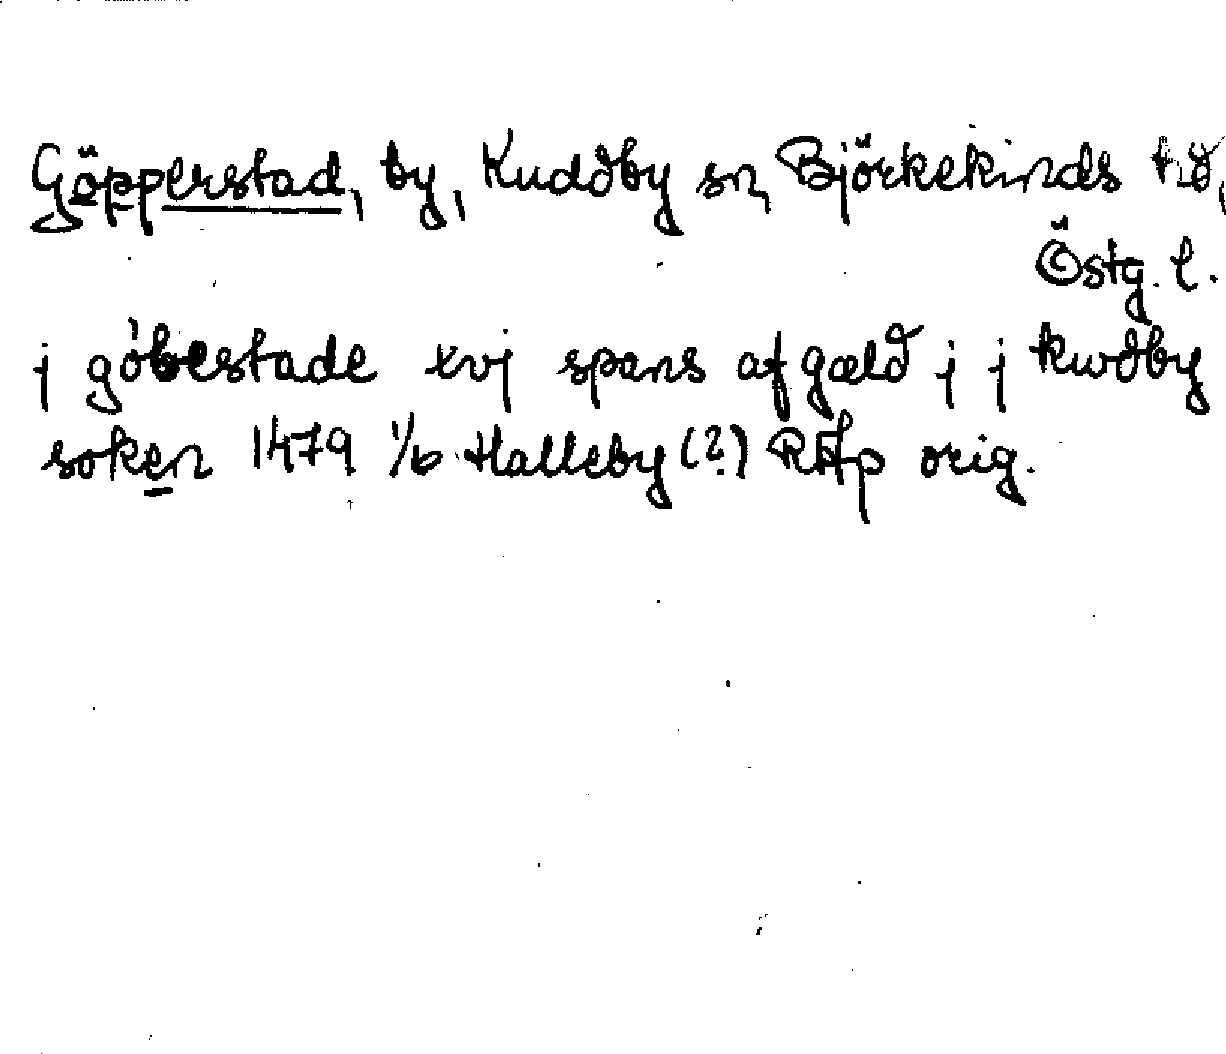 Göpperstad, by, Kuddby sn, Björkekinds hd,
Östg. l.
j góbestade xvj spans afgæld j j kwdby
soken 1479 1/6 Halleby (?) RAp orig.